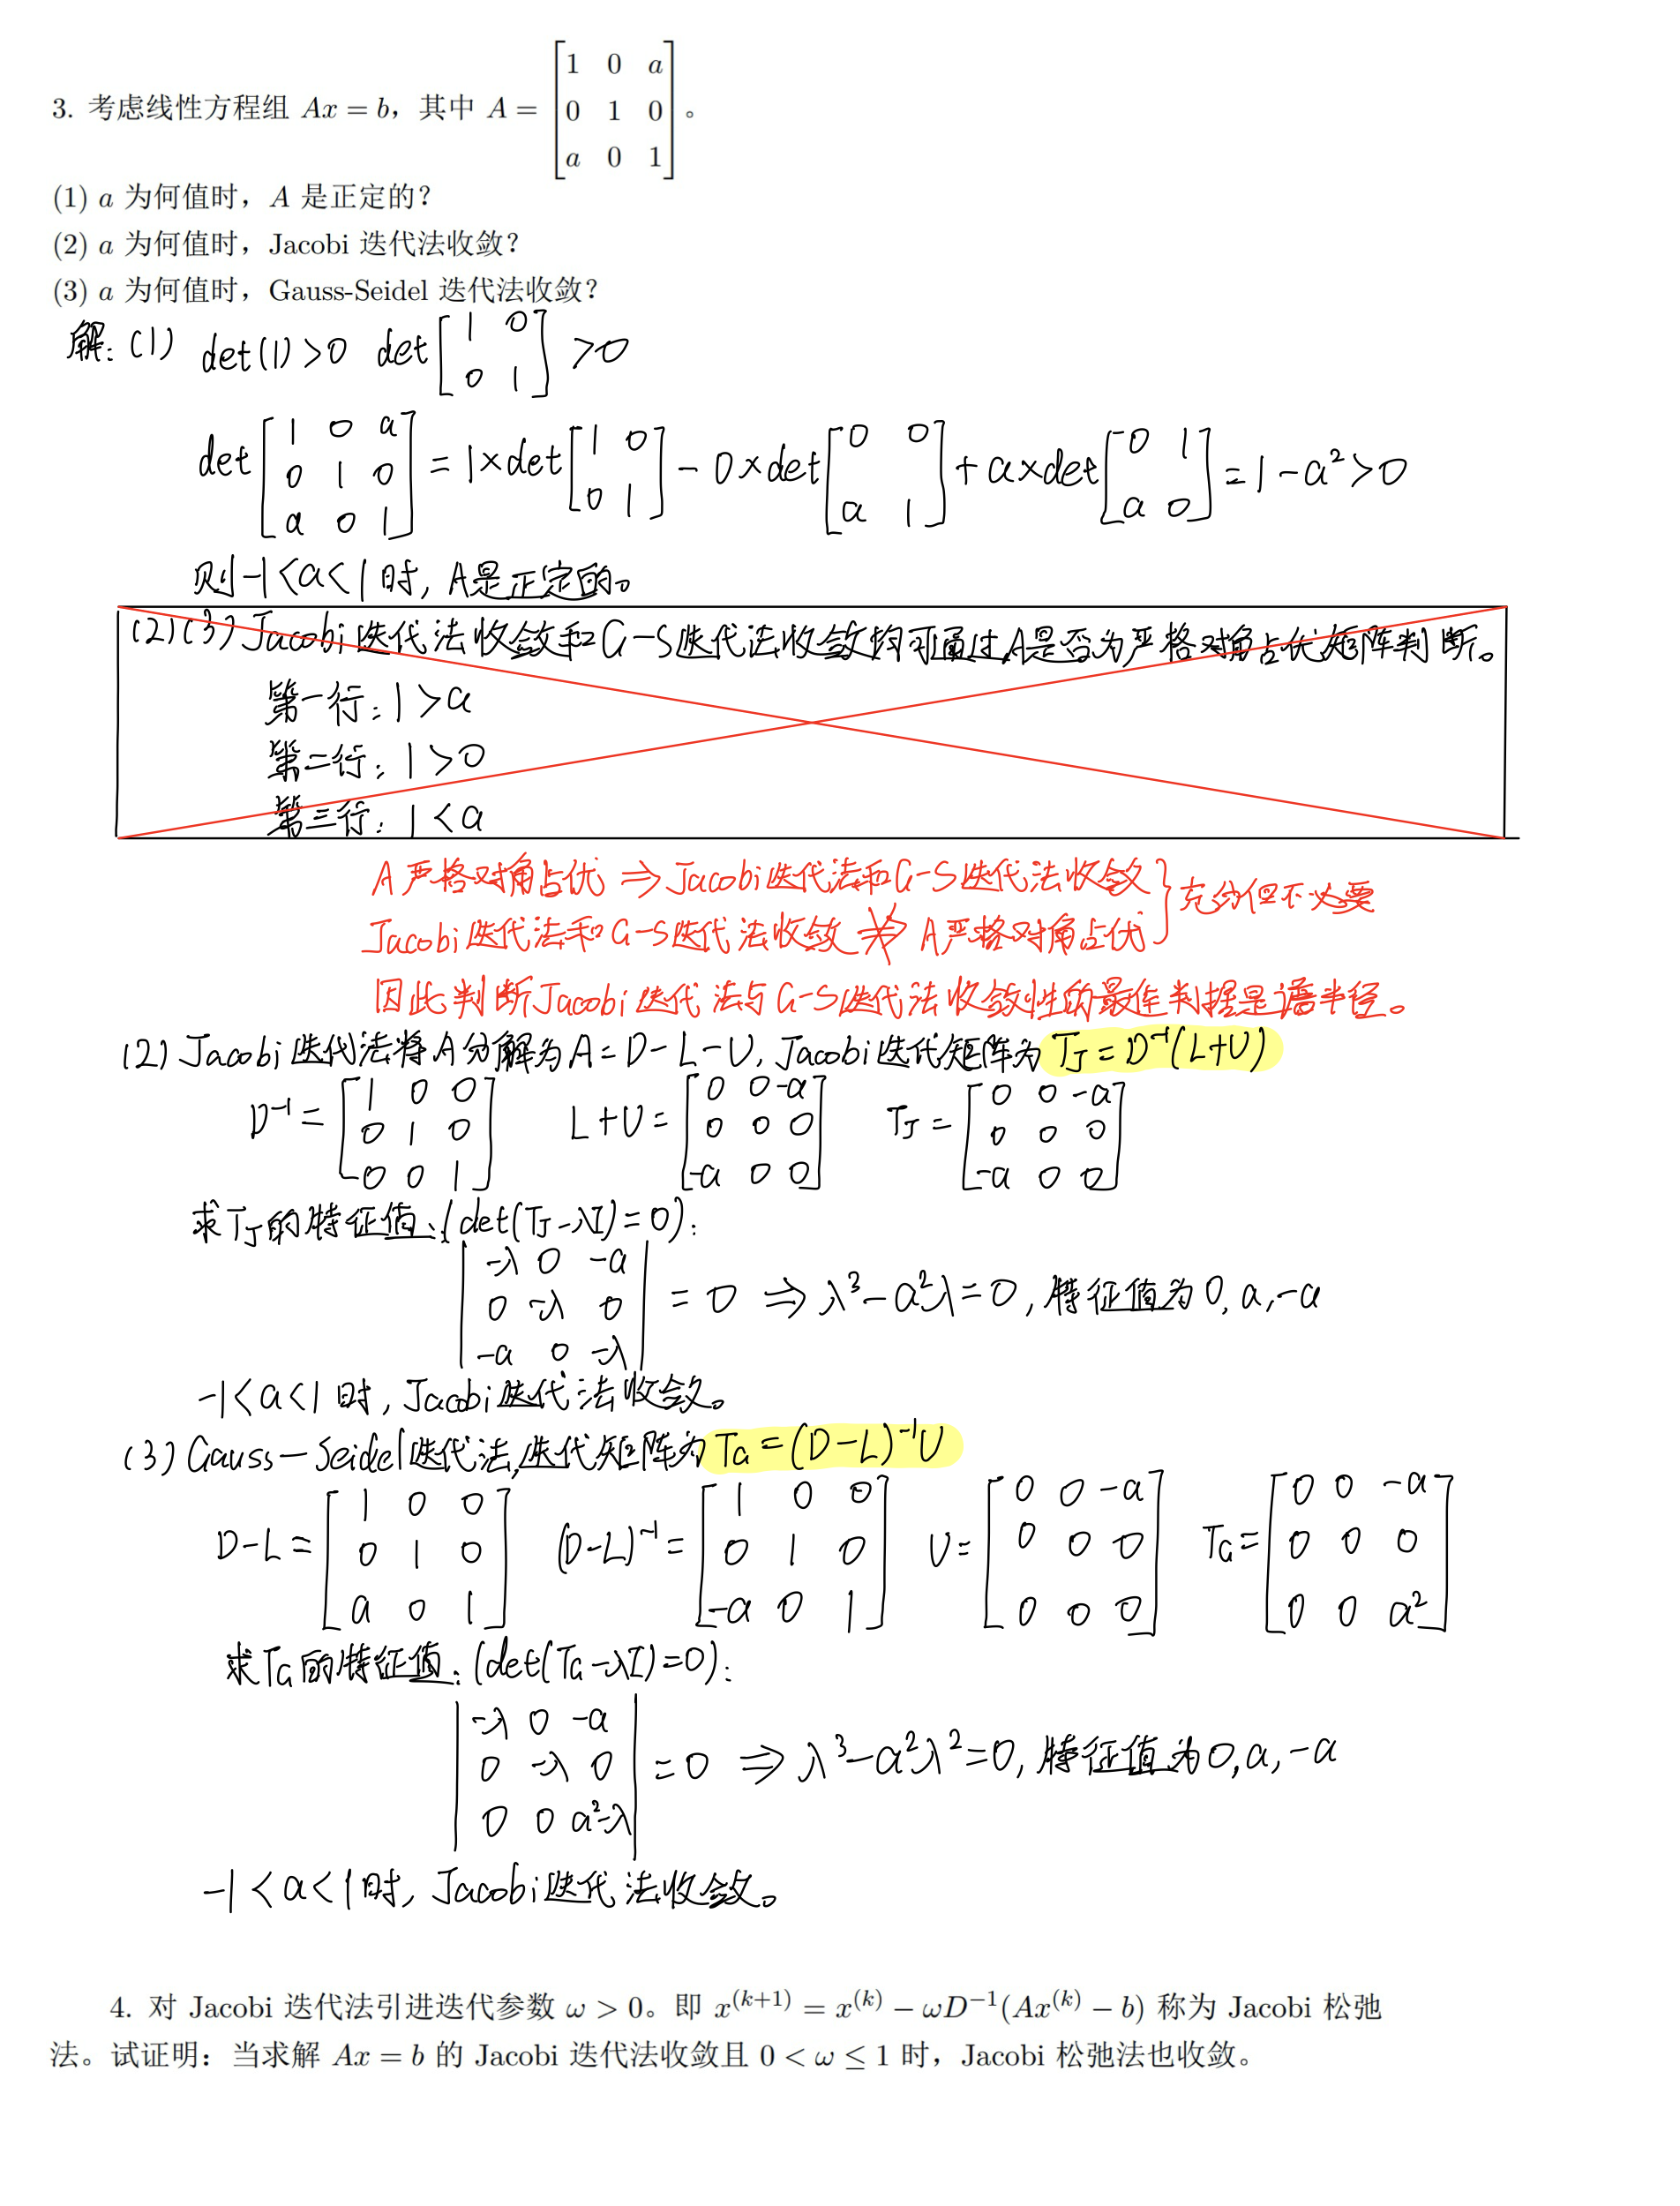 3. 考虑线性方程组 Ax = b，其中 A = [1 0 a; 0 1 0; a 0 1]。
(1) a 为何值时，A 是正定的？
(2) a 为何值时，Jacobi 迭代法收敛？
(3) a 为何值时，Gauss-Seidel 迭代法收敛？
解: (1) det(1)>0 det[1 0; 0 1]>0
det[1 0 a; 0 1 0; a 0 1] = 1×det[1 0; 0 1] - 0×det[0 0; a 1] + a×det[0 1; a 0] = 1-a²>0
则-1<a<1时, A是正定的。
(2)(3) Jacobi迭代法收敛和G-S迭代法收敛均可通过A是否为严格对角占优矩阵判断。
第一行: 1>a
第二行: 1>0
第三行: 1<a
A严格对角占优 ⇒ Jacobi迭代法和G-S迭代法收敛
Jacobi迭代法和G-S迭代法收敛 ⇏ A严格对角占优 } 充分但不必要
因此判断Jacobi迭代法与G-S迭代法收敛性的最佳判据是谱半径。
(2) Jacobi迭代法将A分解为A=D-L-U, Jacobi迭代矩阵为 T_J=D⁻¹(L+U)
D⁻¹=[1 0 0; 0 1 0; 0 0 1] L+U=[0 0 -a; 0 0 0; -a 0 0] T_J=[0 0 -a; 0 0 0; -a 0 0]
求T_J的特征值: (det(T_J-λI)=0):
|-λ 0 -a; 0 -λ 0; -a 0 -λ| = 0 ⇒ λ³-a²λ=0, 特征值为0, a, -a
-1<a<1时, Jacobi迭代法收敛。
(3) Gauss-Seidel迭代法,迭代矩阵为 T_G=(D-L)⁻¹U
D-L=[1 0 0; 0 1 0; a 0 1] (D-L)⁻¹=[1 0 0; 0 1 0; -a 0 1] U=[0 0 -a; 0 0 0; 0 0 0] T_G=[0 0 -a; 0 0 0; 0 0 a²]
求T_G的特征值: (det(T_G-λI)=0):
|-λ 0 -a; 0 -λ 0; 0 0 a²-λ| =0 ⇒ λ³-a²λ²=0, 特征值为0, a, -a
-1<a<1时, Jacobi迭代法收敛。
4. 对 Jacobi 迭代法引进迭代参数 ω > 0。即 x^(k+1) = x^(k) − ωD⁻¹(Ax^(k) − b) 称为 Jacobi 松弛
法。试证明：当求解 Ax = b 的 Jacobi 迭代法收敛且 0 < ω ≤ 1 时，Jacobi 松弛法也收敛。